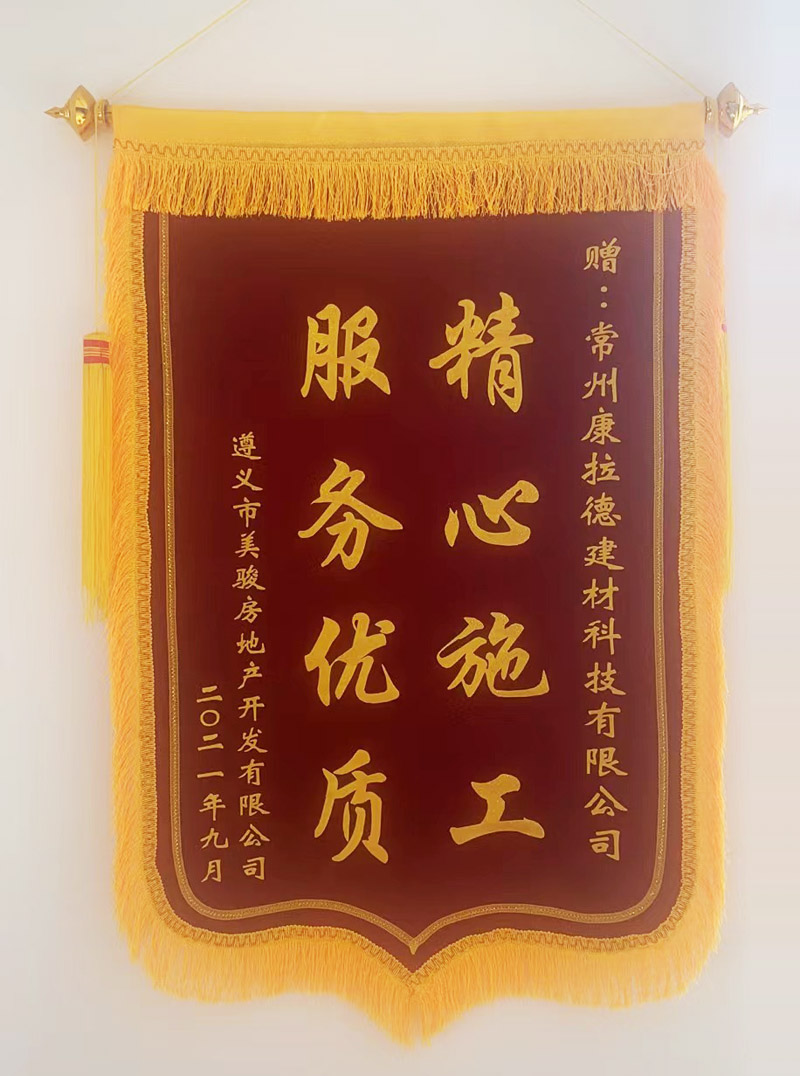 赠：常州康拉德建材科技有限公司
精心施工
服务优质
遵义市美骏房地产开发有限公司
二〇二一年九月